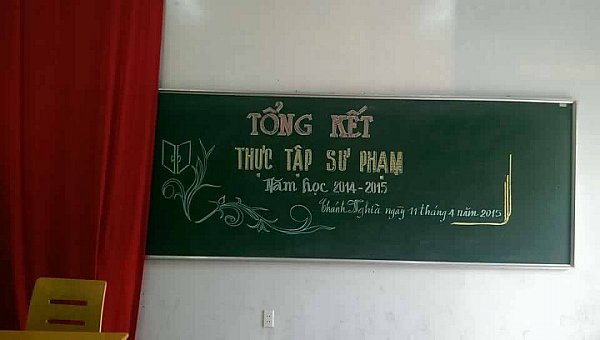 TỔNG KẾT
THỰC TẬP SƯ PHẠM
Năm học 2014-2015
Thanh Nghĩa ngày 11 tháng 4 năm 2015